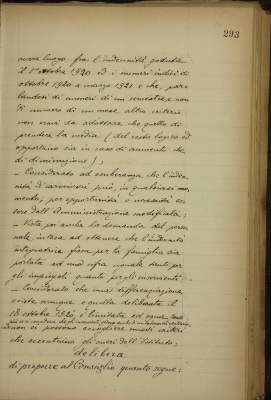 293
avere luogo fra l'indennità goduta
il 1° ottobre 1920 ed i numeri indici di
ottobre 1920 a marzo 1921 e che, par-
landosi di numeri di un semestre e non
di numero di un mese altro criterio
non vi sia da adottare che quello di
prendere la media (del resto logico ed
opportuno sia in caso di aumenti che
di diminuzione);
- Considerato ad conferenza che l'inden-
nità d'caroviveri può, in qualsiasi mo-
mento, per opportunità o necessità es-
sere dall'Amministrazione modificata;
- Vista poi anche la domanda del perso-
nale intesa ad ottenere che l'indennità
integratrice fissa per la famiglia sia
portata ad una cifra uguale tanto per
gli impiegati quanto per gli inservienti.
- Considerato che una differenziazione
esiste comunque e quella deliberata il
18 ottobre 1920, è limitata ed equa
non si possono accogliere nuovi criteri
che accentuino gli oneri dell'Istituto;
delibera
di proporre al Consiglio quanto segue: